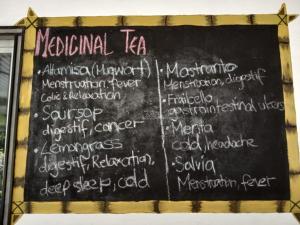 MEDICINAL TEA
• Altamisa (Mugwort)
Menstruation, fever
Colic & Relaxation
• Soursop
digestif, cancer
• Lemongrass
digestif, Relaxation,
deep sleep, cold
• Mastranto
Menstruation, digestif
• Frailbello
gastrointestinal ulcers
• Menta
cold, headache
• Salvia
Menstruation, fever